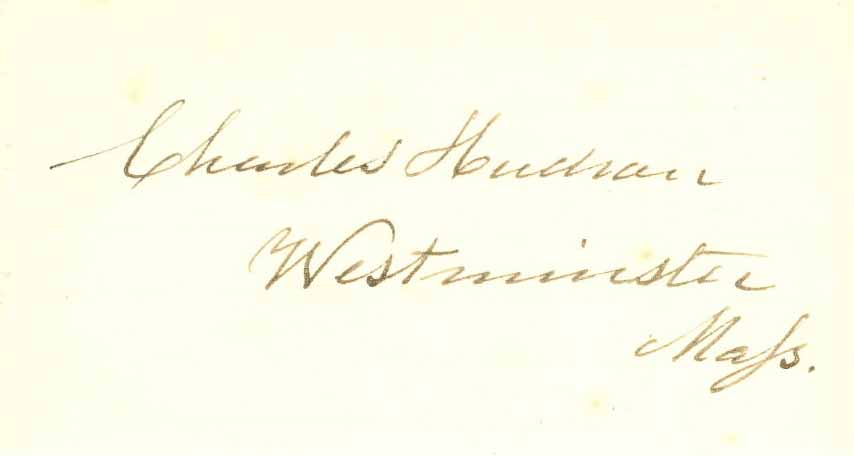 Charles Hudson
Westminster
Maſs.